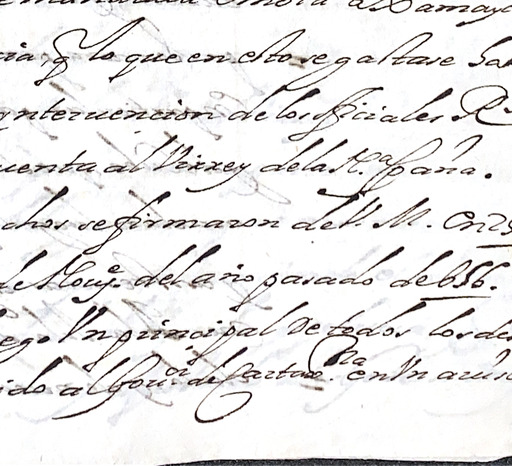 a Xamayc
cia q lo que en esto se gastase Sal
yntervencion de los officiales Rs
uenta al Virrey de la Na España.
chos se firmaron de V. M. en 25
de Nove. del año pasado de 656.
lego Un principal de todos los des
ido al Govor. de Cartaxna en Un aviso